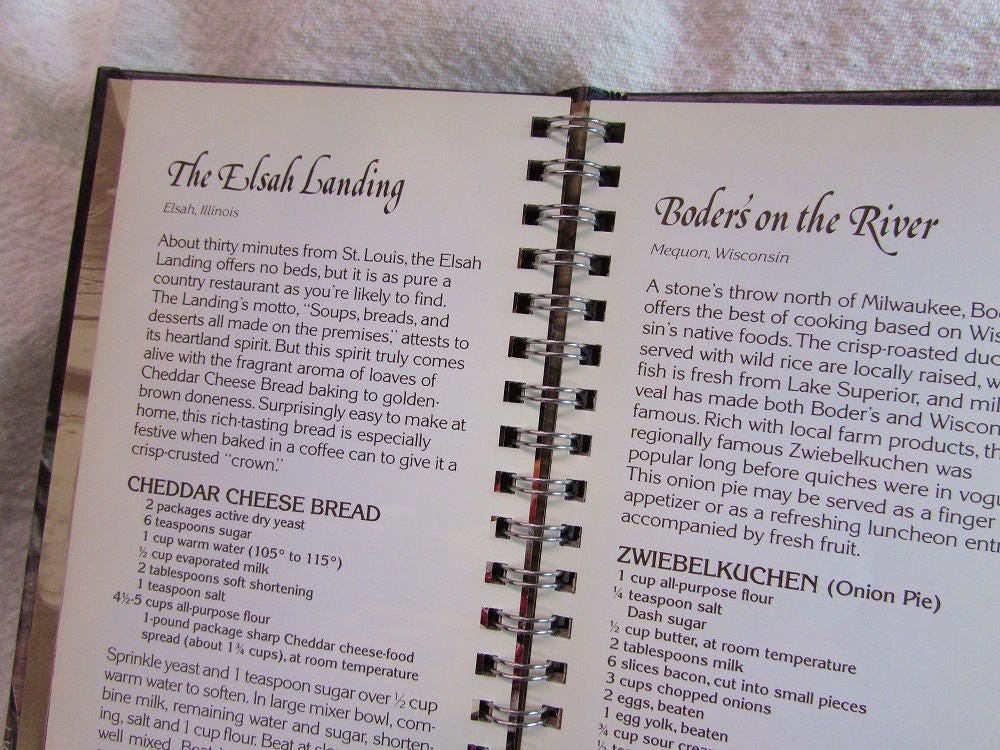 The Elsah Landing
Elsah, Illinois
About thirty minutes from St. Louis, the Elsah
Landing offers no beds, but it is as pure a
country restaurant as you're likely to find.
The Landing's motto, "Soups, breads, and
desserts all made on the premises," attests to
its heartland spirit. But this spirit truly comes
alive with the fragrant aroma of loaves of
Cheddar Cheese Bread baking to golden-
brown doneness. Surprisingly easy to make at
home, this rich-tasting bread is especially
festive when baked in a coffee can to give it a
crisp-crusted "crown."
CHEDDAR CHEESE BREAD
2 packages active dry yeast
6 teaspoons sugar
1 cup warm water (105° to 115°)
½ cup evaporated milk
2 tablespoons soft shortening
1 teaspoon salt
4½-5 cups all-purpose flour
1-pound package sharp Cheddar cheese-food
spread (about 1¾ cups), at room temperature
Sprinkle yeast and 1 teaspoon sugar over ½ cup
warm water to soften. In large mixer bowl, com-
bine milk, remaining water and sugar, shorten-
ing, salt and 1 cup flour. Beat at
well mixed.
Boder's on the River
Mequon, Wisconsin
A stone's throw north of Milwaukee,
offers the best of cooking based on
sin's native foods. The crisp-roasted
served with wild rice are locally raised,
fish is fresh from Lake Superior, and
veal has made both Boder's and
famous. Rich with local farm products,
regionally famous Zwiebelkuchen was
popular long before quiches were in
This onion pie may be served as a finger
appetizer or as a refreshing luncheon
accompanied by fresh fruit.
ZWIEBELKUCHEN (Onion Pie)
1 cup all-purpose flour
¼ teaspoon salt
Dash sugar
½ cup butter, at room temperature
2 tablespoons milk
6 slices bacon, cut into small pieces
3 cups chopped onions
2 eggs, beaten
1 egg yolk, beaten
¾ cup sour
½